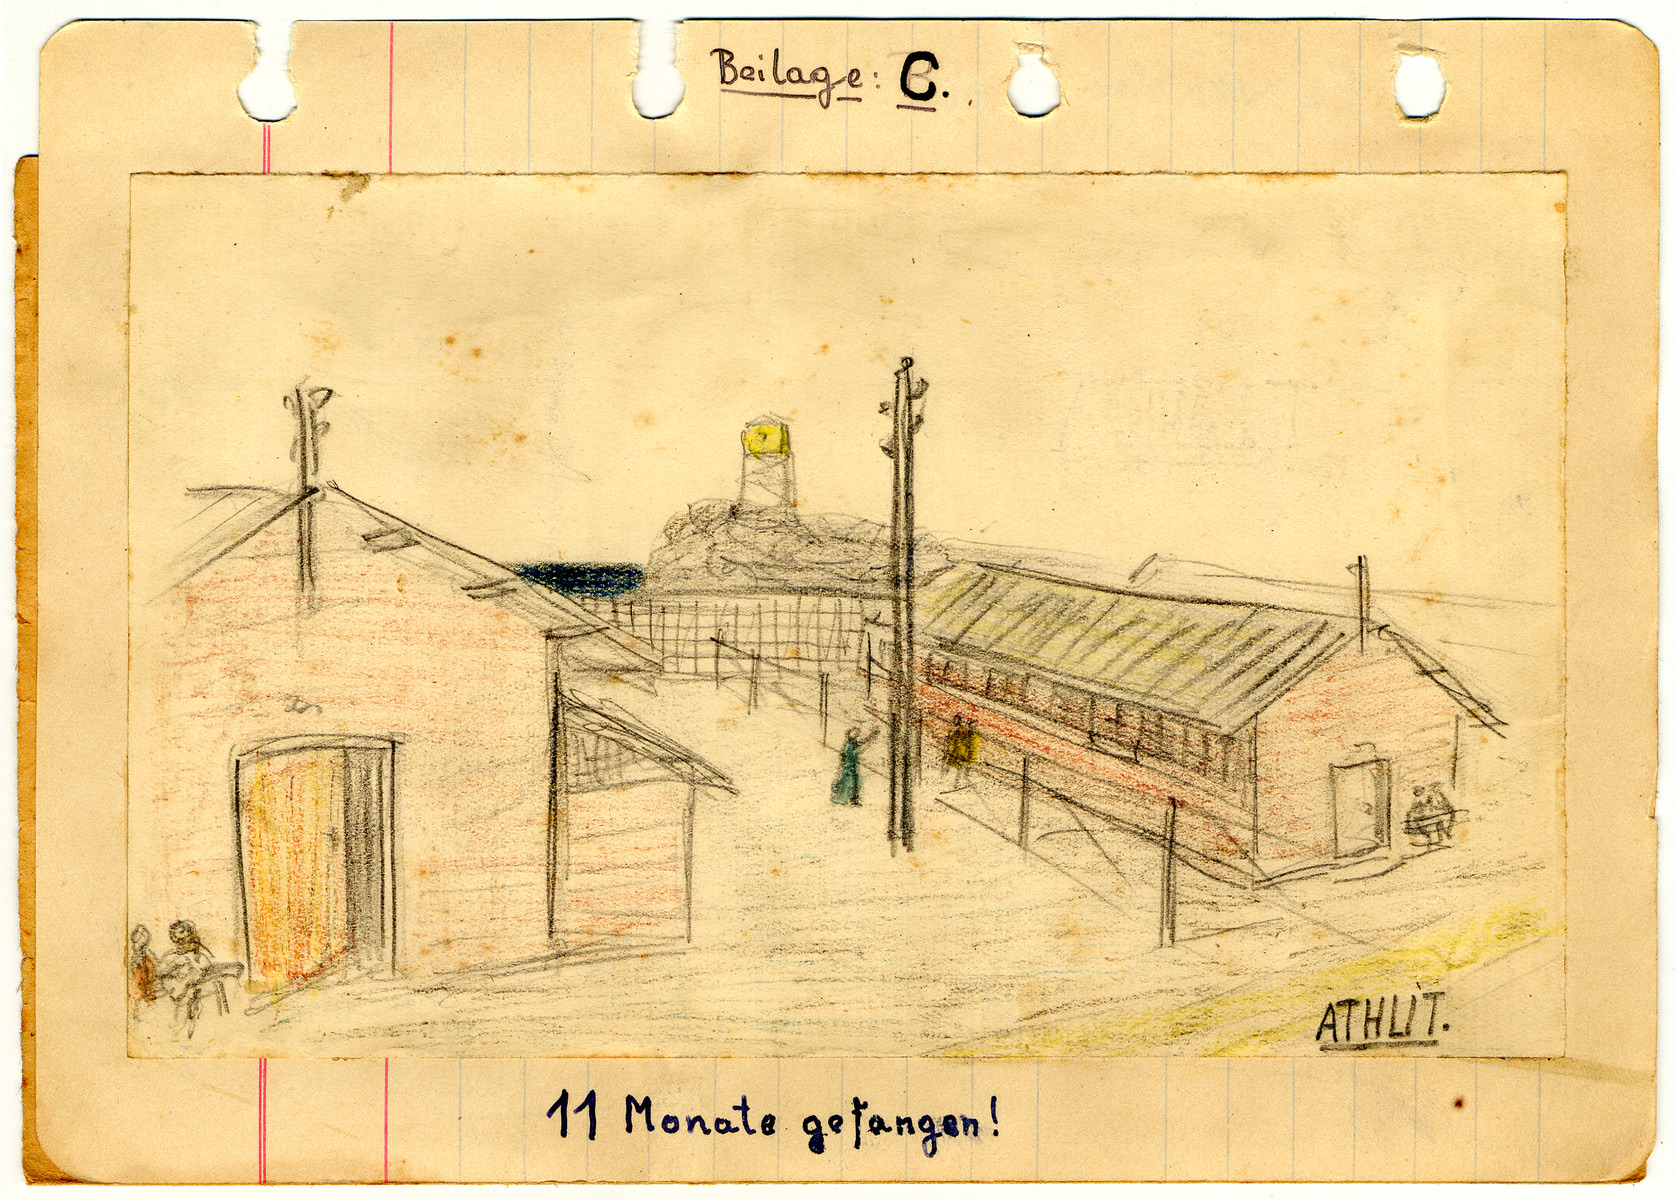 Beilage: C.
ATHLIT.
11 Monate gefangen!